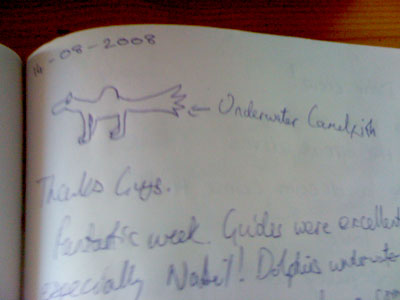 14-08-2008
Underwater Camelfish
Thanks Guys.
Fantastic week. Guides were excellent
especially Nabil! Dolphins underwater